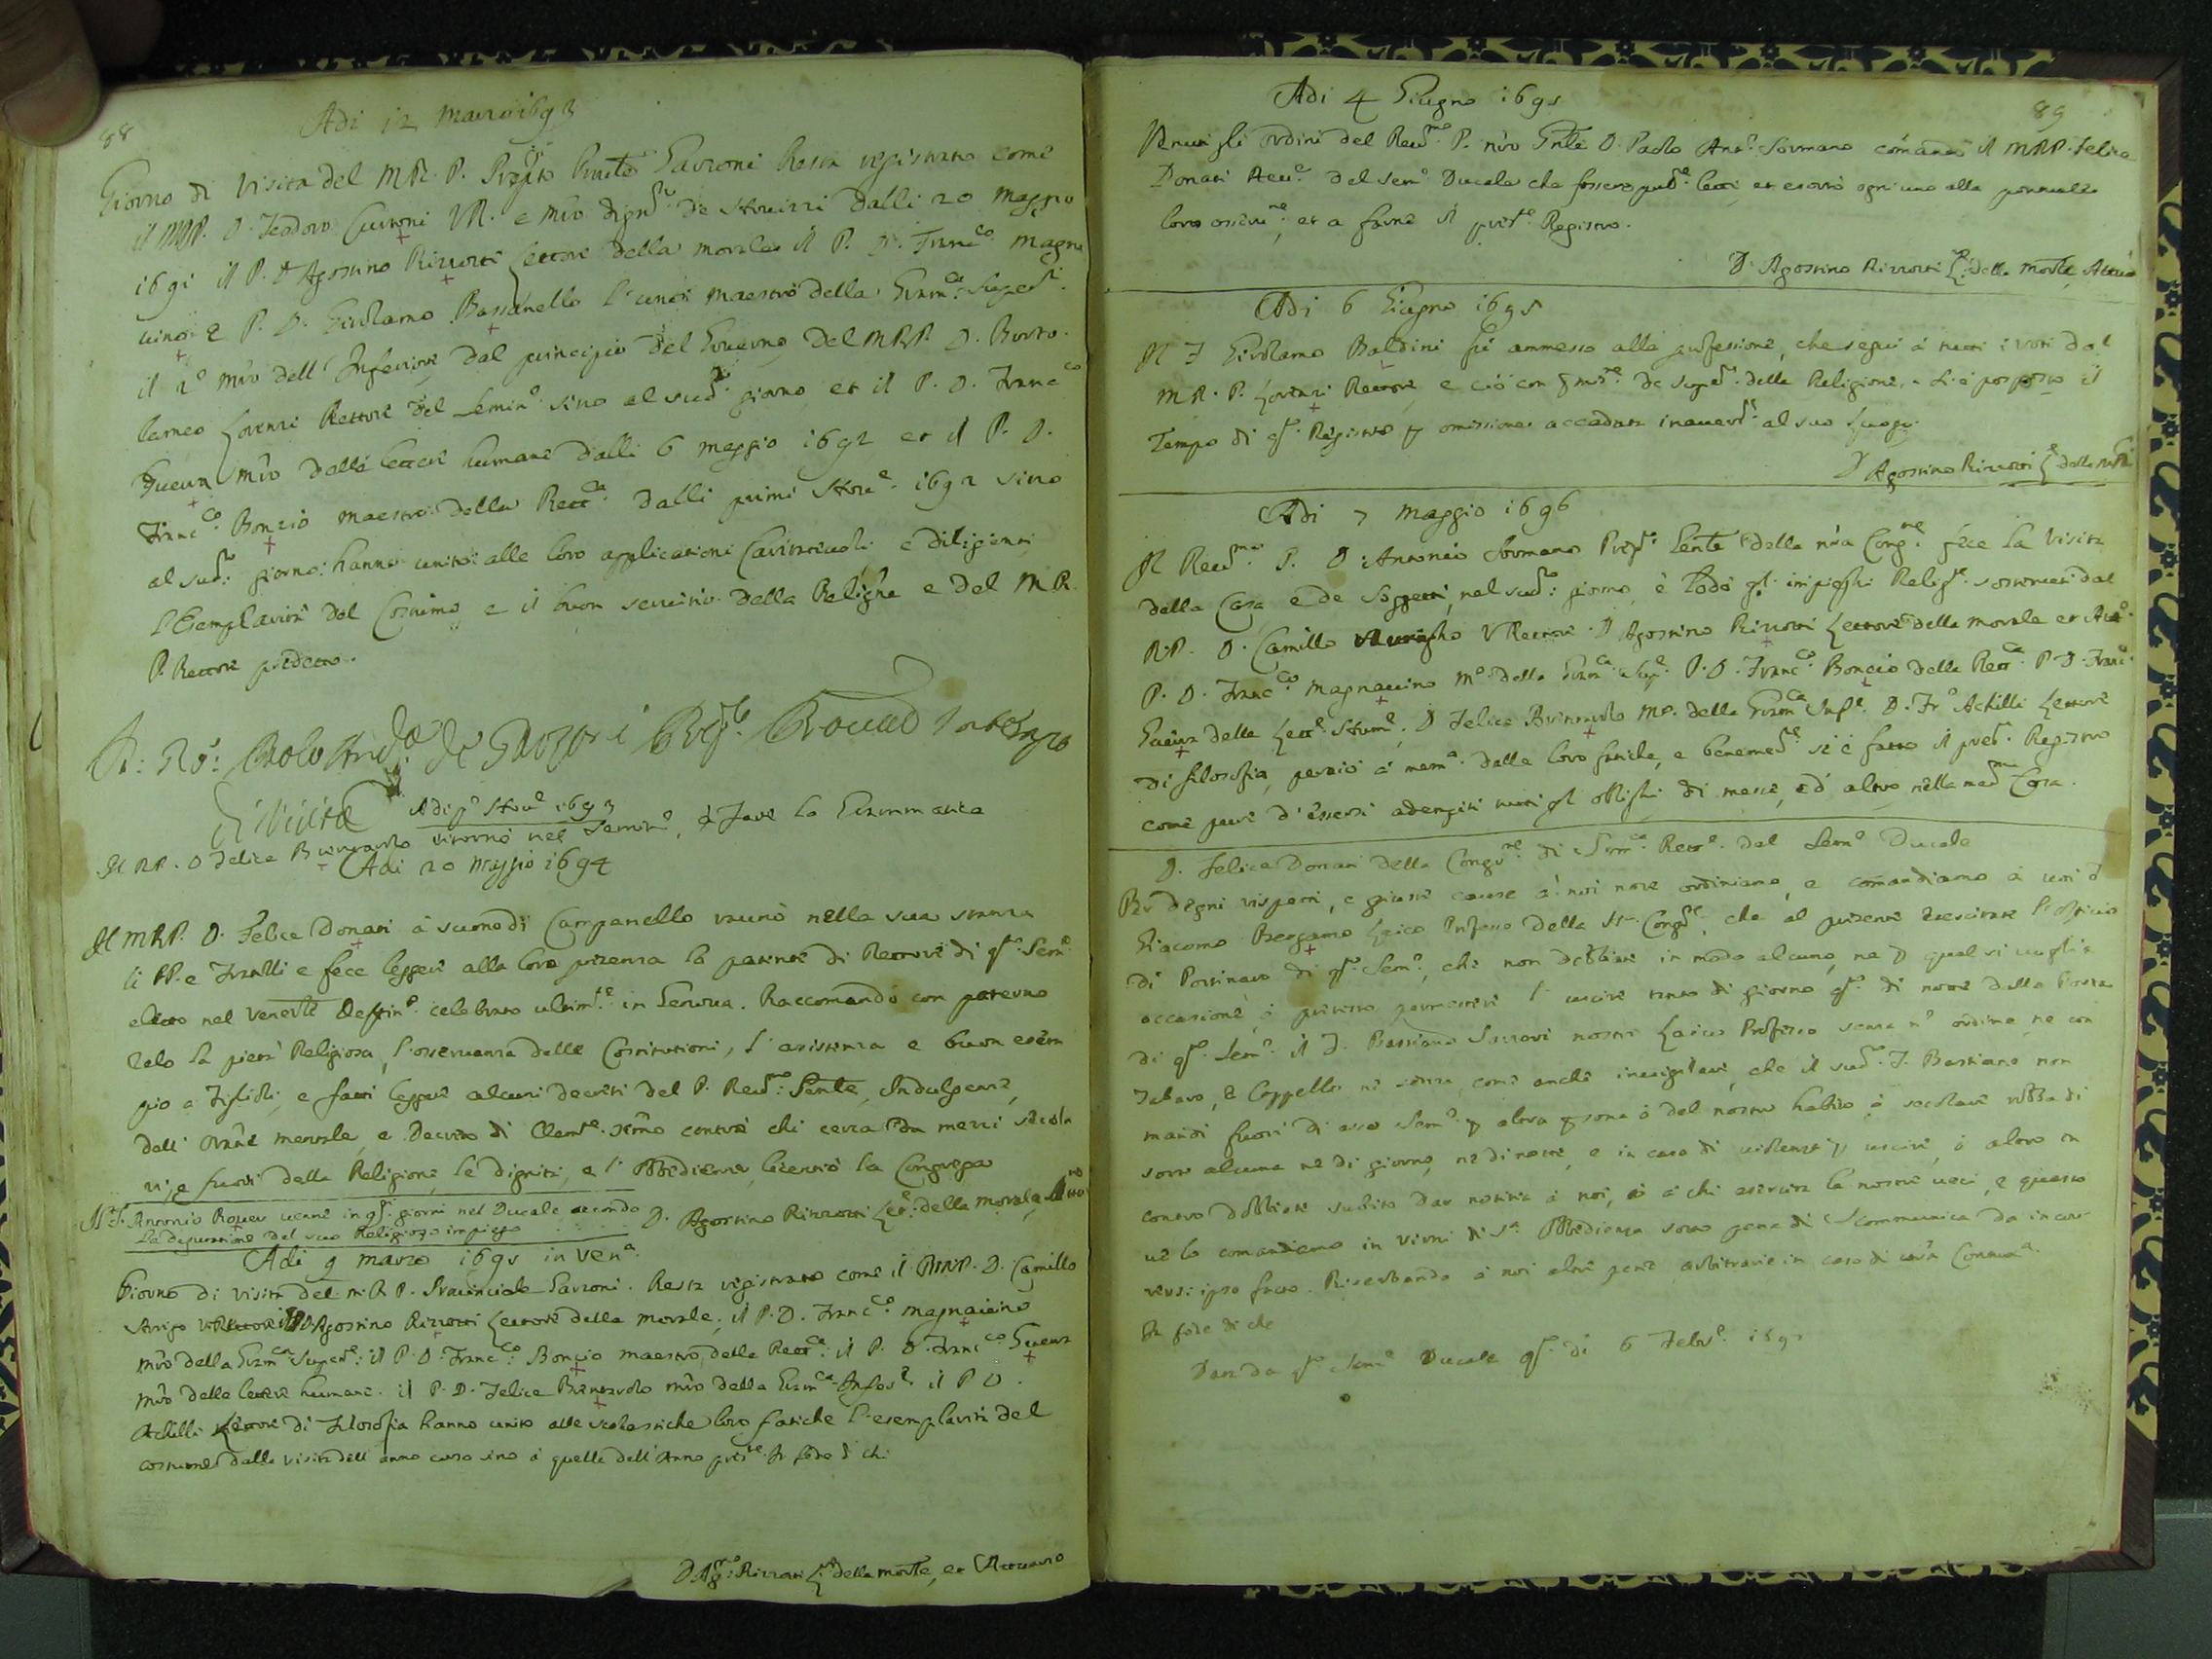 88
Adi 12 Marzo 1693
Giorno di Visita del M.R.P. Prepto Prnte Gavzoni Resta registrato come
il MRP. D. Teodoro VR. e Mro digno de dalli 20 Maggio
1691 il P. D. Agostino Rizzotti Lettore della morale il P. D. Franco Magna
uino e P. D. Girolamo Bassanello l'uno Maestro della Gramca
il 2o Mro dell'Inferiore dal principio del Gouerno del MRP. D. Barto
lameo Lorenzi Rettore del Semino sino al sudo giorno et il P. D. Franco
Gueura Mro delle lettere humane dalli 6 Maggio 1692 et il P. D.
Franco Boncio maestro della Rettca dalli primi 1692 sino
al sudo giorno: hanno unito alle loro applicationi caritateuoli e diligenti
l'Esemplarità del Costume e il buon seruitio della Religne e del M.R.
P. Rettore predetto.
D. Paolo de
di Visita
Adi po 1693
Il RP. D Felice Brunaruolo ritornò nel Semino, à far la Grammatica
Adi 20 Maggio 1694
Il MRP. D. Felice Donati à suono di Campanello raunò nella sua stanza
li PP. e Fratelli e fece leggere alla loro presenza la patente di Rettore di qto Semo
eletto nel Venerle Deffino celebrato ultimte in Genoua. Raccomandò con paterno
zelo la pietà Religiosa, l'osseruanza delle Constitutioni, l'assistenza e buon esem
pio a Figlioli, e fatti leggere alcuni decreti del P. Reumo Gente, Indulgenze,
dell'Oratne mentale, e Decreto di Clemte xiimo contro chi cerca con mezzi secola
ri, e fuori della Religione le dignità, e l'Obbedienze, licentiò la Congrega
Il F. Antonio Rouer uenne in qti giorni nel Ducale secondo
la deputatione del suo Religioso impiego
D. Agostino Rizzotti Lre della morale
Adi 9 marzo 1695 in Vena
Giorno di visita del M.R.P. Prouinciale Gavzoni. Resta registrato come il MRP. D. Camillo
Arrigo V.Rettore il P. D. Agostino Rizzotti Lettore della morale, il P. D. Franco Magnauino
Mro della Gramca Superre: il P. D. Franco Boncio maestro della Rettca: il P. D. Franco Gueura
Mro delle lettere humane. il P. D. Felice Mro della Gramca Inforre il P D.
Achilli Lettore di Filosofia hanno unito alle scolastiche loro fatiche l'esemplarità del
costume dalla visita dell'anno corso sino à quella dell'Anno preste. In fede di chi
D Agno Rizzotti Lre della morle, et Attuario
89
Adi 4 Giugno 1695
Venuti gli ordini del Reumo P. nro Gnle D. Paolo Anto Sormano comandò il MRP. Felice
Donati Rettre del Semo Ducale che fossero letti, et esortò ogn'uno alla pontuale
loro osserune, et a farne il preste Registro.
D. Agostino Rizzotti Lre della Morle, Attuario
Adi 6 Giugno 1695
Il F Girolamo Baldini fù ammesso alla professione, che seguì à tutti i voti dal
M.R.P. Lorenzi Rettore, e ciò con de Superri della Religione. Si è posposto il
Tempo di qto Registro p omissione accaduta al suo luogo.
D Agostino Rizzotti Lre della morle
Adi 7 Maggio 1696
Il Reumo P. D. Antonio Sormano Prepto Gente della nra Congne fece la Visita
della Casa e de Soggetti, nel sudo giorno, è lodò gl'impieghi Religsi sostenuti dal
R.P. D. Camillo V.Rettore. D Agostino Rizzotti Lettore della Morale et Atto
P. D. Franco Magnauino Mo della Gramca P. D. Franco Boncio della Rettca P D. Franco
Gueura delle Lettre Hume, D Felice Mo della Gramca D. Fr. Achilli Lettore
di filosofia, perciò à mema delle loro fatiche, e si è fatto il preste Registro
come pure d'essersi adempiti tutti gl'obblighi di messe, ed altro nella medma Casa.
D. Felice Donati della Congne di Soma Rettre del Semo Ducale
Per degni rispetti, e giuste cause à noi note ordiniamo, e comandiamo à uoi
Giacomo Bergamo Laico Professo della Sa Congne, che al presente esercitate l'officio
di Portinaro di qto Semo, che non dobbiate in modo alcuno, ne p qual si uoglia
occasione, ò pretesto permettere l'uscire tanto di giorno qto di notte dalla Porta
di qto Semo il F. Bastiano nostro Laico Professo senza no ordine, ne con
Tabaro, è Cappello ne senza, come anche inuigilare, che il sudo F. Bastiano non
mandi fuori di esso Semo p altra psona ò del nostro habito, ò secolare robba di
sorte alcuna ne di giorno, ne di notte, e in caso di uiolenza p uscire, ò altro in
contro dobbiate subito dar notitia à noi, ò à chi esercita le nostre ueci, e questo
ue lo comandiamo in uirtù di Sta Obbedienza sotto pena di Scommunica da incor
rersi ipso facto. Riserbando à noi altre pene arbitrarie in caso di Contrae.
In fede di che
Data da qto Semo Ducale qto dì 6 Febro 169